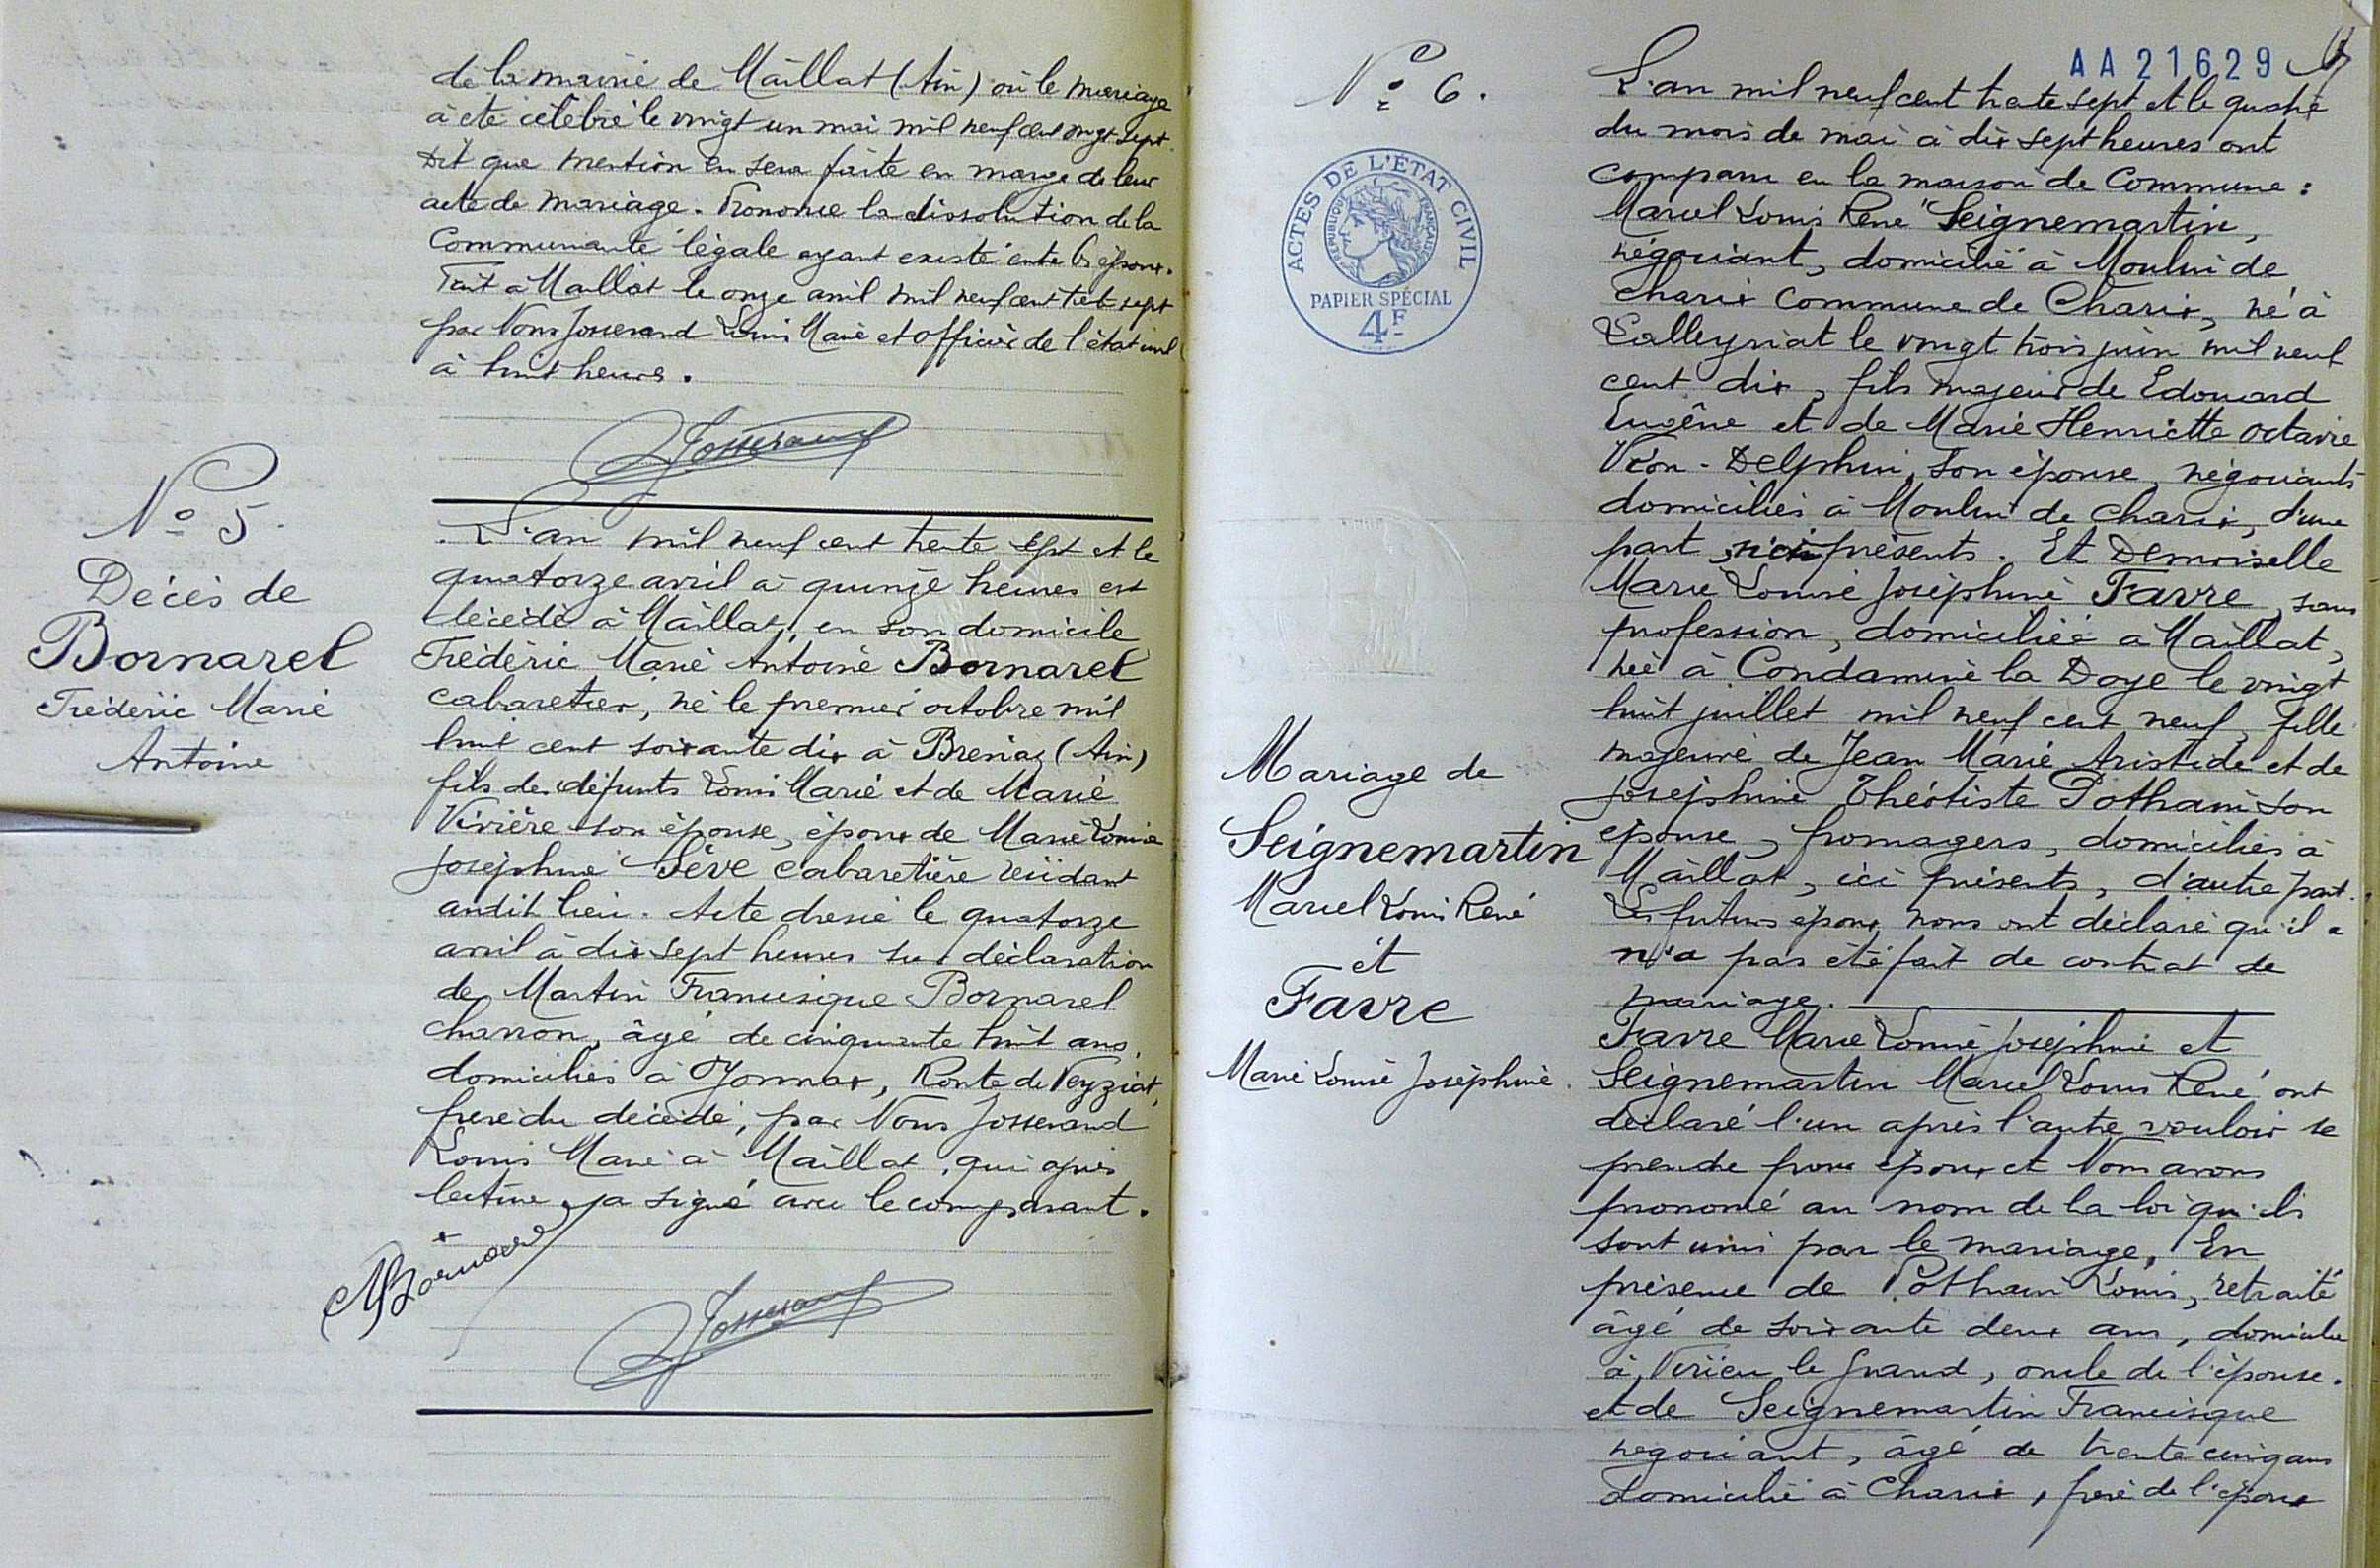 de la mairie de Maillat (Ain) où le mariage
a été célébré le vingt un mai mil neuf cent vingt sept.
Dit que mention en sera faite en marge de leur
acte de mariage. Prononce la dissolution de la
Communauté légale ayant existé entre les époux.
Fait à Maillat le onze avril mil neuf cent trente sept
par Nous Josserand Louis Maire et officier de l'état civil
à huit heures.
Josserand
N° 5.
Décès de
Bornarel
Frédéric Marie
Antoine
L'an mil neuf cent trente sept et le
quatorze avril à quinze heures est
décédé à Maillat, en son domicile
Frédéric Marie Antoine Bornarel
cabaretier, né le premier octobre mil
huit cent soixante dix à Brenaz (Ain)
fils de défunts Louis Marie et de Marie
Vivière son épouse, époux de Marie Louise
Joséphine Sève cabaretière résidant
audit lieu. Acte dressé le quatorze
avril à dix sept heures sur déclaration
de Martin Francisque Bornarel
charron, âgé de cinquante huit ans,
domiciliés à Oyonnax, Route de Veyziat,
frère du décédé, par Nous Josserand
Louis Maire à Maillat, qui après
lecture a signé avec le comparant.
MBornarel
Josserand
AA21629
N° 6.
ACTES DE L'ÉTAT CIVIL
RÉPUBLIQUE FRANÇAISE
PAPIER SPÉCIAL
4F
Mariage de
Seignemartin
Marcel Louis René
et
Favre
Marie Louise Joséphine.
L'an mil neuf cent trente sept et le quatre
du mois de mai à dix sept heures ont
comparu en la maison de Commune :
Marcel Louis René Seignemartin,
négociant, domicilié à Moulin de
Charix Commune de Charix, né à
Lalleyriat le vingt trois juin mil neuf
cent dix, fils majeur de Edouard
Eugène et de Marie Henriette Octavie
Vion-Delphin, son épouse, négociants
domiciliés à Moulin de Charix, d'une
part, ici présents. Et Demoiselle
Marie Louise Joséphine Favre, sans
profession, domiciliée à Maillat,
née à Condamine la Doye le vingt
huit juillet mil neuf cent neuf, fille
majeure de Jean Marie Aristide et de
Joséphine Théotiste Pothain son
épouse, fromagers, domiciliés à
Maillat, ici présents, d'autre part.
Les futurs époux nous ont déclaré qu'il a
n'a pas été fait de contrat de
mariage.
Favre Marie Louise Joséphine et
Seignemartin Marcel Louis René ont
déclaré l'un après l'autre vouloir se
prendre pour époux et Nous avons
prononcé au nom de la loi qu'ils
sont unis par le mariage. En
présence de Pothain Louis, retraité
âgé de soixante deux ans, domicilié
à Virieu le Grand, oncle de l'épouse.
et de Seignemartin Francisque
négociant, âgé de trente cinq ans
domicilié à Charix, frère de l'époux